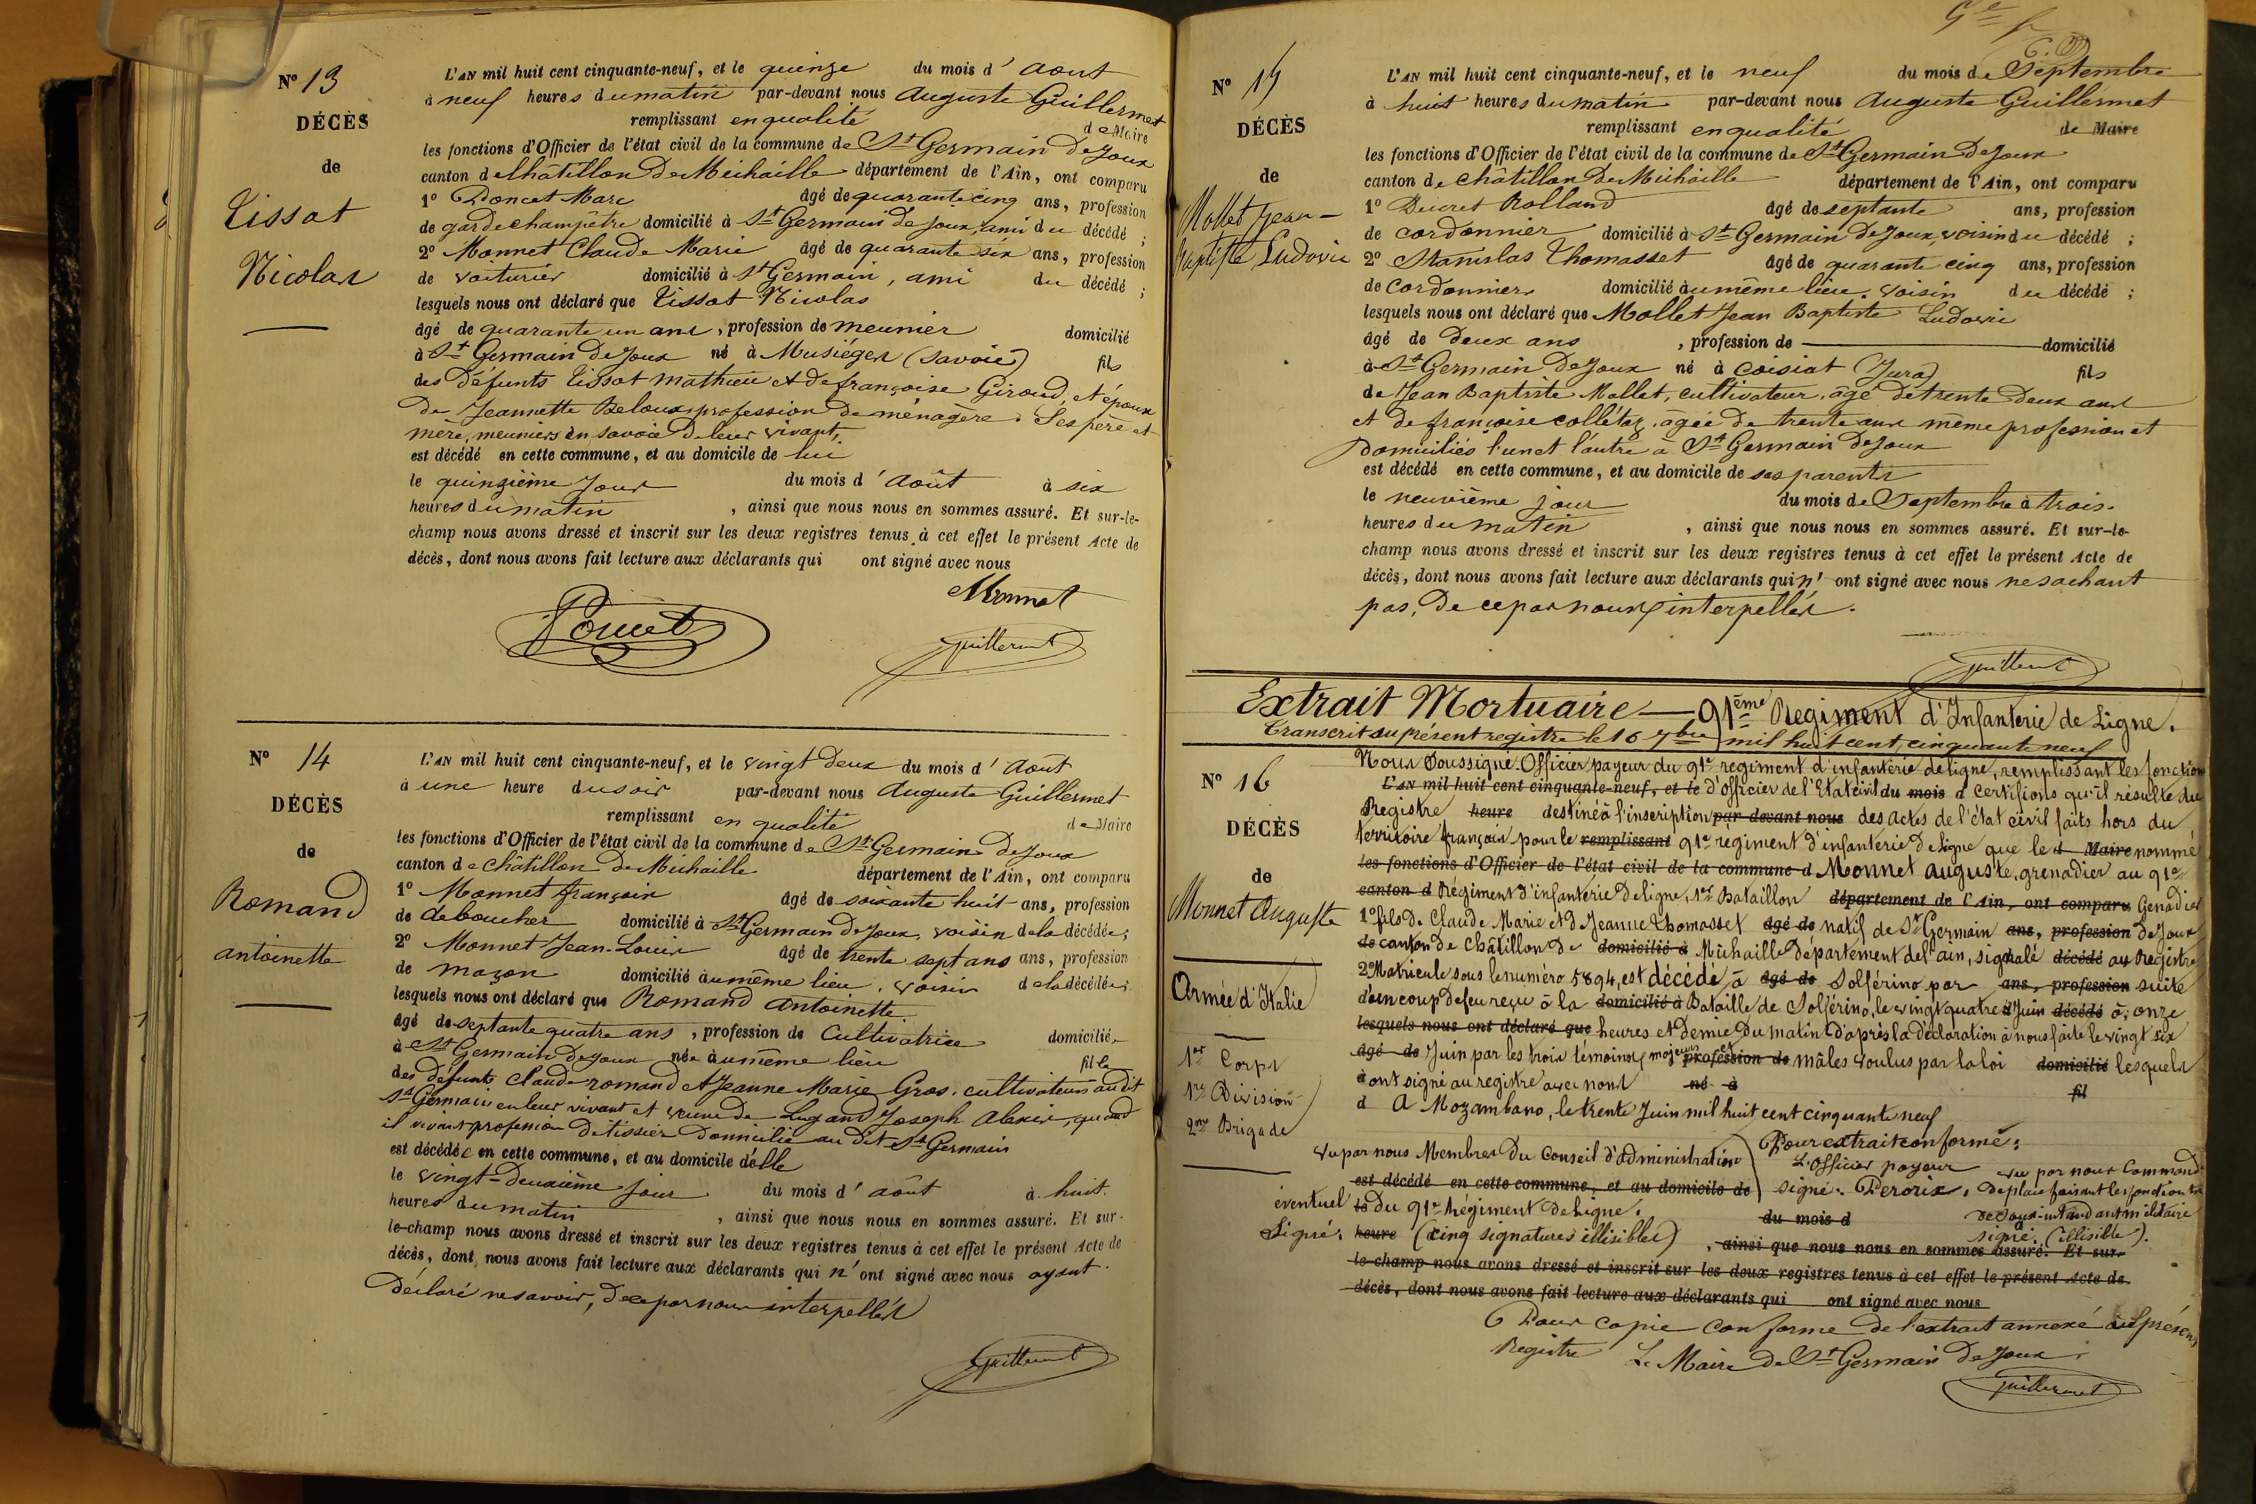 N° 13
DÉCÈS
de
Tissot
Nicolas
L'AN mil huit cent cinquante-neuf, et le quinze du mois d' Aout
à neuf heures du matin par-devant nous Auguste Guillermet
remplissant en qualité de Maire
les fonctions d'Officier de l'état civil de la commune de St Germain De Joux
canton de Châtillon De Michaille département de l'Ain, ont comparu
1° Poncet Marc âgé de quarante cinq ans, profession
de garde champêtre domicilié à St Germain de Joux, ami du décédé ;
2° Monnet Claude Marie âgé de quarante six ans, profession
de voiturier domicilié à St Germain, ami du décédé ;
lesquels nous ont déclaré que Tissot Nicolas
âgé de quarante un ans, profession de meunier domicilié
à St Germain De Joux né à Musiéges (Savoie) fils
des défunts Tissot Mathieu et de françoise Giroud, et époux
de Jeannette Beloux profession de ménagère. Ses père et
mère, meuniers en savoie De leur vivant,
est décédé en cette commune, et au domicile de lui
le quinzième Jour du mois d' Août à six
heures du matin , ainsi que nous nous en sommes assuré. Et sur-le-
champ nous avons dressé et inscrit sur les deux registres tenus à cet effet le présent Acte de
décès, dont nous avons fait lecture aux déclarants qui ont signé avec nous
Monnet
Poncet
Guillermet
N° 14
DÉCÈS
de
Romand
antoinette
L'AN mil huit cent cinquante-neuf, et le vingt deux du mois d' Août
à une heure du soir par-devant nous Auguste Guillermet
remplissant en qualité de Maire
les fonctions d'Officier de l'état civil de la commune de St Germain De Joux
canton de Châtillon De Michaille département de l'Ain, ont comparu
1° Monnet françois âgé de soixante huit ans, profession
de de boucher domicilié à St Germain De Joux, voisin de la décédée;
2° Monnet Jean-Louis âgé de trente sept ans ans, profession
de maçon domicilié au même lieu, voisin de la décédée;
lesquels nous ont déclaré que Romand Antoinette
âgé de septante quatre ans, profession de Cultivatrice domiciliée
à St Germain de Joux née à u même lieu fille
des défunts Claude romand et Jeanne Marie Gros, cultivateurs au dit
St Germain en leur vivant et veuve de Lugand Joseph Alexis, quand
il vivait profession De tissier Domicilié au dit St Germain
est décédée en cette commune, et au domicile d'elle
le vingt-deuxième Jour du mois d' août à huit
heures du matin , ainsi que nous nous en sommes assuré. Et sur-
le-champ nous avons dressé et inscrit sur les deux registres tenus à cet effet le présent Acte de
décès, dont nous avons fait lecture aux déclarants qui n'ont signé avec nous ayant
Déclaré ne savoir, De ce par nous interpellés
Guillermet
N° 15
DÉCÈS
de
Mollet Jean-
Baptiste Ludovic
L'AN mil huit cent cinquante-neuf, et le neuf du mois de Septembre
à huit heures du matin par-devant nous Auguste Guillermet
remplissant en qualité de Maire
les fonctions d'Officier de l'état civil de la commune de St Germain De Joux
canton de Châtillon De Michaille département de l'Ain, ont comparu
1° Ducret Rolland âgé de septante ans, profession
de cordonnier domicilié à St Germain De Joux, voisin du décédé ;
2° Stanislas Thomasset âgé de quarante cinq ans, profession
de Cordonnier domicilié au même lieu. voisin du décédé ;
lesquels nous ont déclaré que Mollet Jean Baptiste Ludovic
âgé de Deux ans , profession de domicilié
à St Germain De Joux né à Coisiat (Jura) fils
de Jean Baptiste Mollet, cultivateur, âgé de trente deux ans
et de françoise Collétaz, âgée de trente ans même profession et
Domiciliés l'un et l'autre à St Germain De Joux
est décédé en cette commune, et au domicile de ses parents
le neuvième jour du mois de Septembre à trois
heures du matin , ainsi que nous nous en sommes assuré. Et sur-le-
champ nous avons dressé et inscrit sur les deux registres tenus à cet effet le présent Acte de
décès, dont nous avons fait lecture aux déclarants qui n'ont signé avec nous ne sachant
pas, De ce par nous interpellés.
Guillermet
Extrait Mortuaire — 91ème Regiment d'Infanterie de Ligne.
Transcrit au présent registre le 16 7bre mil huit cent cinquante neuf
N° 16
DÉCÈS
de
Monnet Auguste
Armée d'Italie
1er Corps
1re Division
2me Brigade
Nous Soussigné Officier payeur du 91e régiment d'infanterie de ligne, remplissant les fonctions
L'AN mil huit cent cinquante-neuf, et le d'officier de l'Etat civil du mois d certifions qu'il résulte du
Registre heure destiné à l'inscription par-devant nous des actes de l'état civil faits hors du
territoire français pour le remplissant 91e régiment d'infanterie De ligne que le d Maire nommé
les fonctions d'Officier de l'état civil de la commune d Monnet Auguste, grenadier au 91e
canton d Régiment d'infanterie De ligne, 1er Bataillon département de l'Ain, ont comparu Genadier
1° fils De Claude Marie et D Jeanne Thomasset âgé de natif de St Germain ans, profession De Joux
de canton De Châtillon De domicilié à Michaille Département de l'ain, signalé décédé au Registre
2° Matricule sous le numéro 5894, est décédé à âgé de Solférino par ans, profession suite
d'un coup de feu reçu à la domicilié à Bataille de Solférino, le vingt quatre Juin décédé à; onze
lesquels nous ont déclaré que heures et Demie Du matin D'après la déclaration à nous faite le vingt six
âgé de Juin par les trois témoins majeurs et profession de mâles voulus par la loi domicilié lesquels
à ont signé au registre avec nous né à fil
d A Mozambano, le trente Juin mil huit cent cinquante neuf
Pour extrait conforme;
L'Officier payeur
signé: Perorix,
Vu par nous Membres Du Conseil d'administration
est décédé en cette commune, et au domicile de
éventuel le Du 91e Régiment De ligne;
Signé: heure (cinq signatures illisibles)
vu par nous Command
De place faisant les fonctions
de sous-intendant militaire
signé. (illisible).
du mois d
, ainsi que nous nous en sommes assuré. Et sur-
le-champ nous avons dressé et inscrit sur les deux registres tenus à cet effet le présent Acte de
décès, dont nous avons fait lecture aux déclarants qui ont signé avec nous
Pour copie conforme de l'extrait annexé au présent
Registre Le Maire De St Germain De Joux
Guillermet